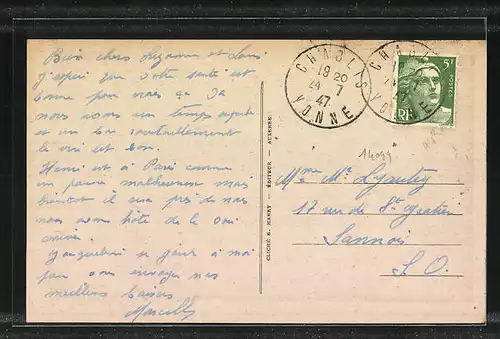 Bien chers Suzanne et Louis
J'espère que votre santé est
bonne pour nous ça va
nous avons un temps superbe
et un bon ravitaillement
le vin est bon.
Henri est à Paris comme
un pauvre malheureux mais
bientôt il sera près de nous
nous avons hâte de le voir
arriver.
se joint à moi
pour vous envoyer nos
meilleurs baisers
Marcelle
CLICHÉ G. HAMRY - ÉDITEUR - AUXERRE
CHABLIS
19 20
24 - 7
47
YONNE
CHABLIS
YONNE
5F
POSTES
RF
14094
Mme Mr
17 rue de St Gratien
Sannois
S. O.